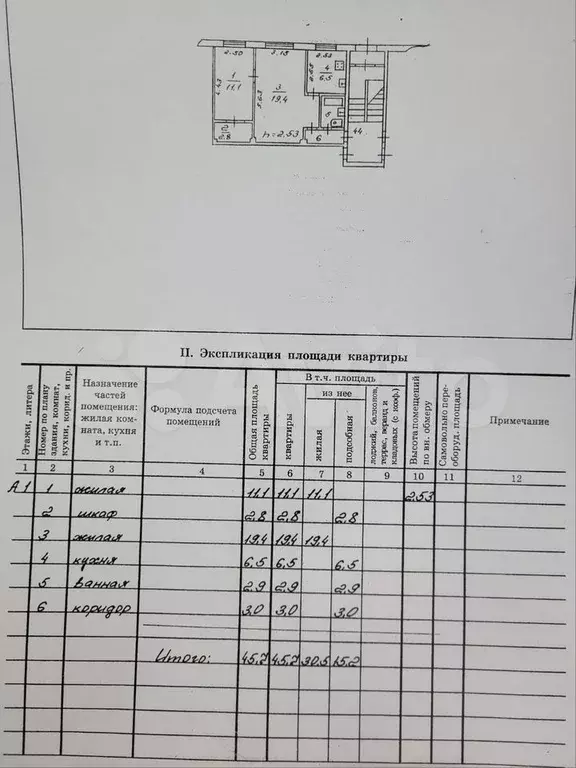 2.50 3.15 2.52
1
11,1
4.43
3
19,4
5.63
4
6,5
5
2
2.8
h=2.53
6
44
II. Экспликация площади квартиры
Этажи, литера
Номер по плану здания, комнат, кухни, корид. и пр.
Назначение
частей
помещения:
жилая ком-
ната, кухня
и т.п.
Формула подсчета
помещений
Общая площадь
квартиры
В т.ч. площадь
квартиры
из нее
жилая
подсобная
лоджий, балконов,
террас, веранд и
кладовых (с коэф.)
Высота помещений
по вн. обмеру
Самовольно пере-
оборуд. площадь
Примечание
1 2 3 4 5 6 7 8 9 10 11 12
А1 1 жилая 11,1 11,1 11,1 2.53
2 шкаф 2,8 2,8 2,8
3 жилая 19,4 19,4 19,4
4 кухня 6,5 6,5 6,5
5 ванная 2,9 2,9 2,9
6 коридор 3,0 3,0 3,0
Итого: 45,7 45,7 30,5 15,2